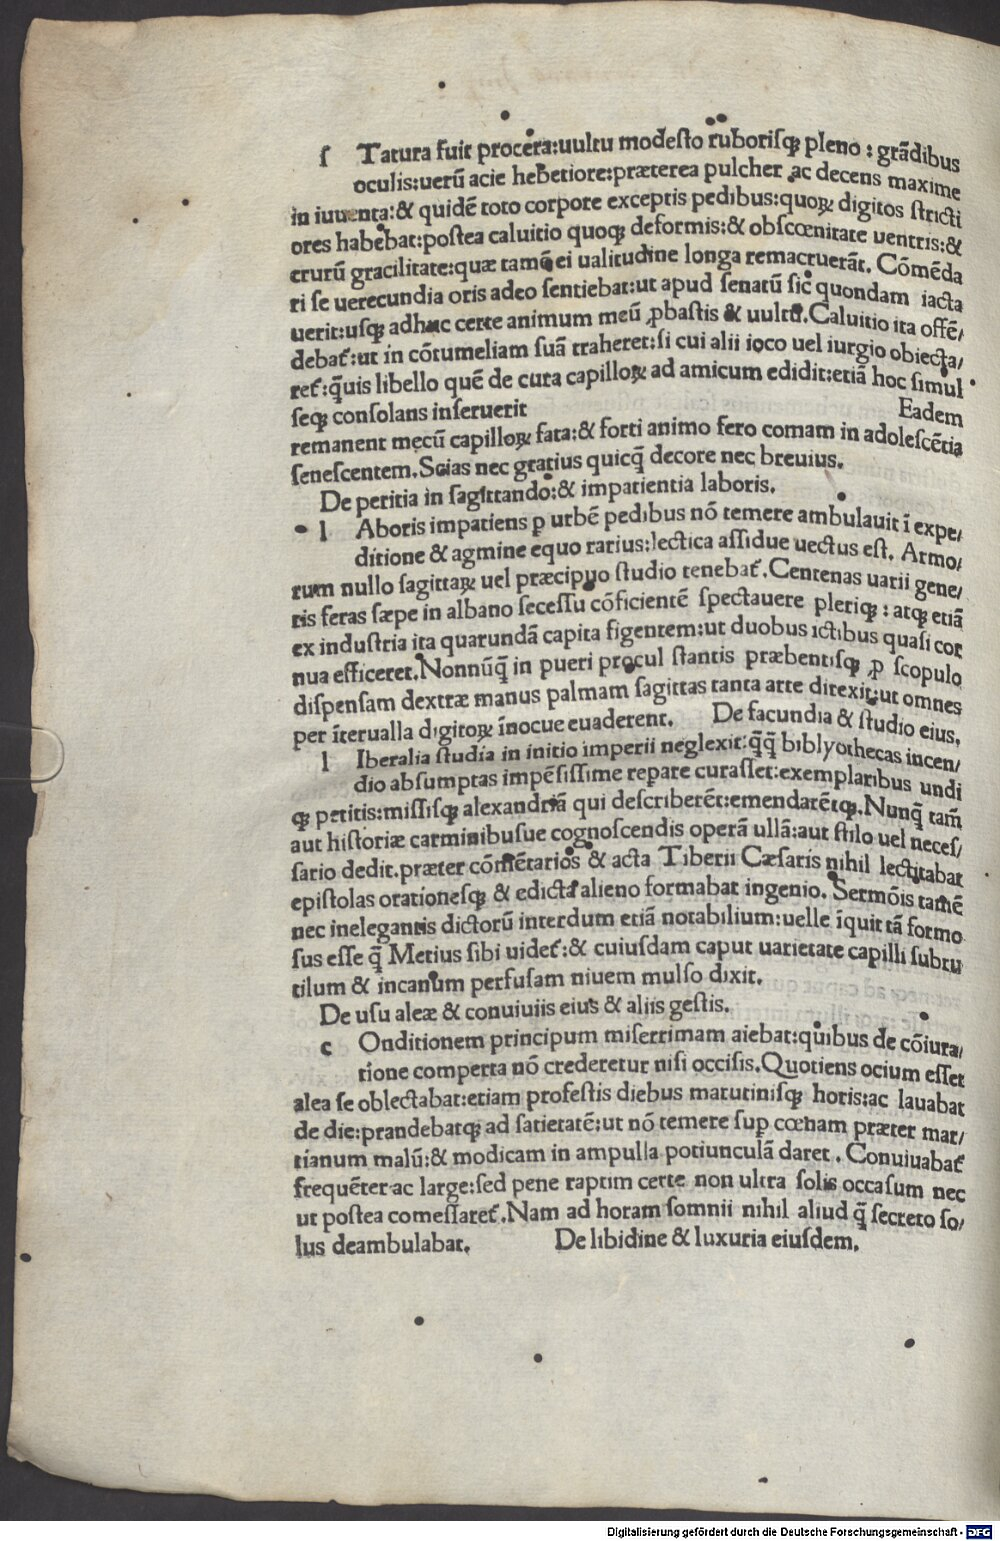 ſ Tatura fuit procera:uultu modeſto ruboriſqꝫ pleno : grādibus
oculis:uerū acie hebetiore:præterea pulcher ac decens maxime
in iuuenta:& quidē toto corpore exceptis pedibus:quoꝝ digitos ſtricti
ores habebat:poſtea caluitio quoqꝫ deformis:& obſcœnitate uentris:&
crurū gracilitate:quæ tamē ei ualitudine longa remacruerāt. Cōmēda
ri ſe uerecundia oris adeo ſentiebat:ut apud ſenatū ſic quondam iacta
uerit:uſqꝫ adhuc certe animum meū ꝓbaſtis & uultū.Caluitio ita offē/
debat᷑:ut in cōtumeliam ſuā traheret:ſi cui alii ioco uel iurgio obiecta/
ret᷑:q̄uis libello quē de cura capilloꝝ ad amicum edidit:etiā hoc ſimul
ſeqꝫ conſolans inſeruerit Eadem
remanent mecū capilloꝝ fata:& forti animo fero comam in adoleſcētia
ſeneſcentem.Scias nec gratius quicq̄ decore nec breuius.
De peritia in ſagittando:& impatientia laboris.
l Aboris impatiens ꝑ urbē pedibus nō temere ambulauit ī expe/
ditione & agmine equo rarius:lectica aſſidue uectus eſt. Armo/
rum nullo ſagittaꝝ uel præcipuo ſtudio tenebat᷑.Centenas uarii gene/
ris feras ſæpe in albano ſeceſſu cōficientē ſpectauere pleriqꝫ : atqꝫ etiā
ex induſtria ita quarundā capita figentem:ut duobus ictibus quaſi cor
nua efficeret.Nonnūq̄ in pueri procul ſtantis præbentiſqꝫ ꝓ ſcopulo
diſpenſam dextræ manus palmam ſagittas tanta arte direxit:ut omnes
per īterualla digitoꝝ īnocue euaderent. De facundia & ſtudio eius.
l Iberalia ſtudia in initio imperii neglexit:q̄q̄ biblyothecas incen/
dio abſumptas impēſiſſime repare curaſſet:exemplaribus undi
qꝫ petitis:miſſiſqꝫ alexandriā qui deſcriberēt:emendarētqꝫ.Nunq̄ tam̄
aut hiſtoriæ carminibuſue cognoſcendis operā ullā:aut ſtilo uel neceſ/
ſario dedit.præter cōmētarios & acta Tiberii Cæſaris nihil lectitabat
epiſtolas orationeſqꝫ & edicta alieno formabat ingenio. Sermōis tamē
nec inelegantis dictorū interdum etiā notabilium:uelle īquit tā formo
ſus eſſe q̄ Metius ſibi uidet᷑:& cuiuſdam caput uarietate capilli ſubru
tilum & incanum perfuſam niuem mulſo dixit.
De uſu aleæ & conuiuiis eius & aliis geſtis.
c Onditionem principum miſerrimam aiebat:quibus de cōiura/
tione comperta nō crederetur niſi occiſis.Quotiens ocium eſſet
alea ſe oblectabat:etiam profeſtis diebus matutiniſqꝫ horis:ac lauabat
de die:prandebatqꝫ ad ſatietatē:ut nō temere ſuꝑ cœnam præter mat/
tianum malū:& modicam in ampulla potiunculā daret . Conuiuabat᷑
frequēter ac large:ſed pene raptim certe non ultra ſolis occaſum nec
ut poſtea comeſſaret᷑.Nam ad horam ſomnii nihil aliud q̄ ſecreto ſo/
lus deambulabat. De libidine & luxuria eiuſdem.
Digitalisierung gefördert durch die Deutsche Forschungsgemeinschaft - DFG